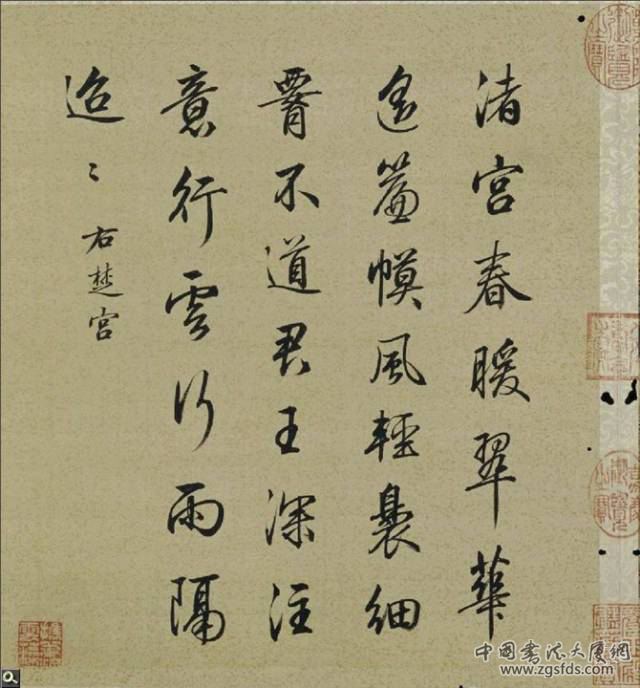 渚宮春暖翠華
遙簾幙風輕裊細
腰不道君王深注
意行雲行雨隔
迢〻
右楚宮
中國書法大厦網
www.zgsfds.com